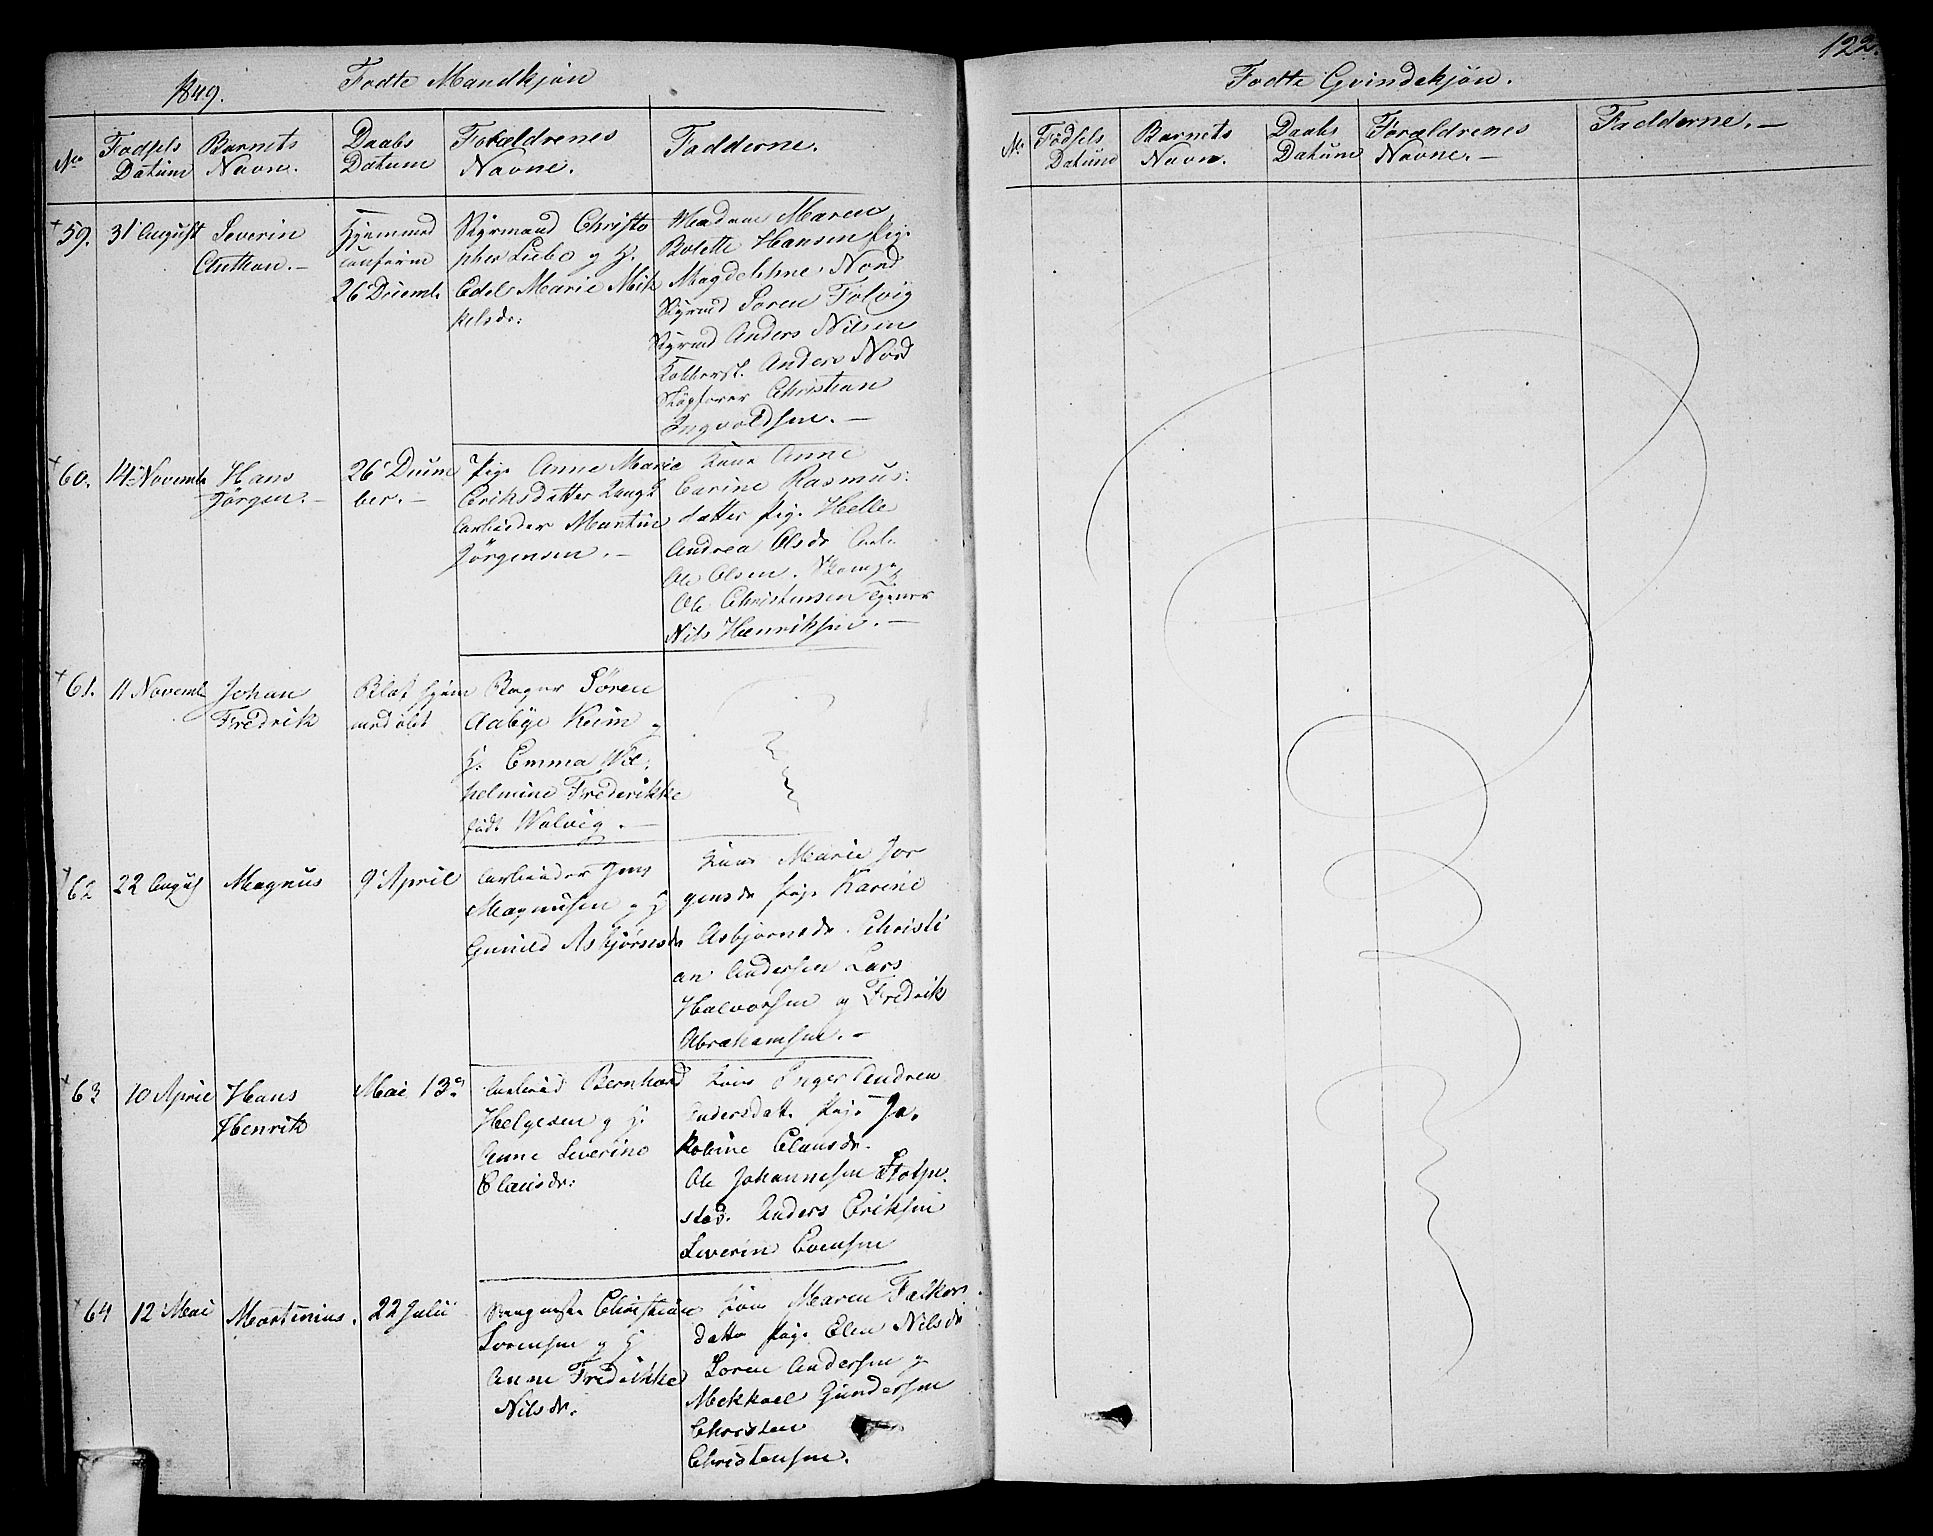 1849.
Fødte Mandkjøn
No
Fødsels Datum
Barnets Navn.
Daabs Datum
Forældrenes Navne.
Fadderne.
59.
31 August
Severin
Anthon.
Hjemmed
confirm
26 Decemb.
Christo
pher Liebe og H.
Edel Marie Mik
kelsdr:
Madam Maren
Bolette Hansen Pig.
Magdelene Nord
Soren Folvig
Anders Nilsen
Anders Nord
Christian
Ingvoldsen.
60.
14 Novemb
Hans
Jörgen.
26 Decem
ber.
Pig. Anne Marie
Eriksdatter
Arbeider Martin
Jörgensen.
Kone Anne
Carine Rasmus:
datter Pig. Helle
Andrea Olsdr Arb.
Ole Olsen.
Ole Christensen Tjener
Nils Henriksen.
61.
11 Novemb
Johan
Fredrik
Blot hjem
med øbt
Bager Søren
Aabye Keim og
H. Emma Wil:
helmine Frederikke
født Walvig.
62
22 August
Magnus
9 April
Arbeider Jens
Magnusen og H
Gunild Asbjørnsdr
Kone Marie Jor
gensdr Pig. Karine
Asbjørnsdr. Christi
an Andersen Lars
Halvorsen og Fredrik
Abrahamsen.
63
10 April
Hans
Henrik
Mai 13de
Arbeid Bernhard
Helgesen og H.
Anne Severine
Clausdr:
Kone Inger Andrea
Andersdatt. Pig. Ja.
kobine Clausdr.
Ole Johannesen
Anders Eriksen
Severin Evensen
64
12 Mai
Martinius.
22 Julii
Christian
Sorensen og H
Anne Fredrikke
Nilsdr.
Kone Maren Falkors
datter Pig. Elen Nilsdr
Soren Andersen og
Mekkael Gundersen
Christen
Christensen.
122.
Fødte Qvindekjøn.
No
Fødsels Datum
Barnets Navn.
Daabs Datum
Forældrenes Navne.
Fadderne.